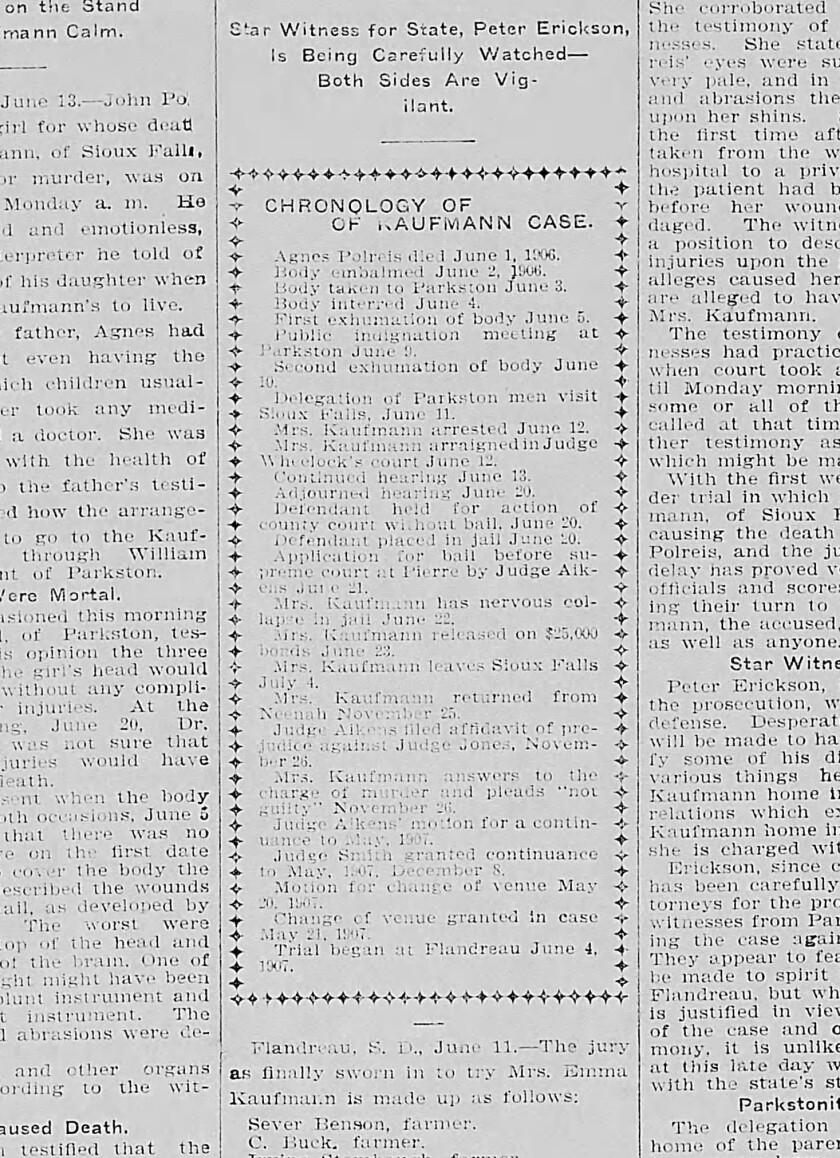 on the Stand
mann Calm.
June 13.—John Po
girl for whose deat
ann, of Sioux Falls,
or murder, was on
Monday a. m. He
d and emotionless,
terpreter he told of
of his daughter when
aufmann's to live.
father, Agnes had
t even having the
hich children usual-
er took any medi-
a doctor. She was
with the health of
o the father's testi-
ed how the arrange-
to go to the Kauf-
through William
nt of Parkston.
Were Mortal.
asioned this morning
l, of Parkston, tes-
is opinion the three
he girl's head would
without any compli-
r injuries. At the
ng, June 20, Dr.
was not sure that
juries would have
death.
sent when the body
oth occasions, June 5
that there was no
re on the first date
cover the body the
escribed the wounds
tail, as developed by
The worst were
top of the head and
of the brain. One of
ght might have been
blunt instrument and
t instrument. The
l abrasions were de-
and other organs
ording to the wit-
aused Death.
testified that the
Star Witness for State, Peter Erickson,
Is Being Carefully Watched—
Both Sides Are Vig-
ilant.
CHRONOLOGY OF
OF KAUFMANN CASE.
Agnes Polreis died June 1, 1906.
Body embalmed June 2, 1906.
Body taken to Parkston June 3.
Body interred June 4.
First exhumation of body June 5.
Public indignation meeting at
Parkston June 9.
Second exhumation of body June
10.
Delegation of Parkston men visit
Sioux Falls, June 11.
Mrs. Kaufmann arrested June 12.
Mrs. Kaufmann arraigned in Judge
Wheelock's court June 12.
Continued hearing June 13.
Adjourned hearing June 20.
Defendant held for action of
county court without bail, June 20.
Defendant placed in jail June 20.
Application for bail before su-
preme court at Pierre by Judge Aik-
ens June 21.
Mrs. Kaufmann has nervous col-
lapse in jail June 22.
Mrs. Kaufmann released on $25,000
bonds June 23.
Mrs. Kaufmann leaves Sioux Falls
July 4.
Mrs. Kaufmann returned from
Neenah November 25.
Judge Aikens filed affidavit of pre-
judice against Judge Jones, Novem-
ber 26.
Mrs. Kaufmann answers to the
charge of murder and pleads "not
guilty" November 26.
Judge Aikens' motion for a contin-
uance to May, 1907.
Judge Smith granted continuance
to May, 1907, December 8.
Motion for change of venue May
20, 1907.
Change of venue granted in case
May 21, 1907.
Trial began at Flandreau June 4,
1907.
Flandreau, S. D., June 11.—The jury
as finally sworn in to try Mrs. Emma
Kaufmann is made up as follows:
Sever Benson, farmer.
C. Buck, farmer.
She corroborated
the testimony of
nesses. She state
reis' eyes were su
very pale, and in
and abrasions the
upon her shins.
the first time aft
taken from the w
hospital to a priv
the patient had b
before her woun
daged. The witne
a position to desc
injuries upon the
alleges caused her
are alleged to hav
Mrs. Kaufmann.
The testimony o
nesses had practic
when court took a
til Monday mornin
some or all of th
called at that tim
ther testimony as
which might be ma
With the first we
der trial in which
mann, of Sioux F
causing the death
Polreis, and the ju
delay has proved v
officials and scores
ing their turn to
mann, the accused,
as well as anyone.
Star Witne
Peter Erickson,
the prosecution, w
defense. Desperat
will be made to ha
fy some of his di
various things he
Kaufmann home in
relations which ex
Kaufmann home in
she is charged wit
Erickson, since c
has been carefully
torneys for the pro
witnesses from Par
ing the case again
They appear to fea
be made to spirit
Flandreau, but wh
is justified in view
of the case and o
mony, it is unlike
at this late day w
with the state's st
Parkstonit
The delegation
home of the paren